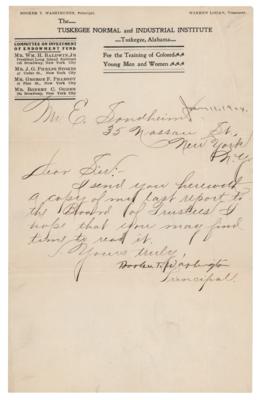 BOOKER T. WASHINGTON, Principal. WARREN LOGAN, Treasurer.
The
TUSKEGEE NORMAL and INDUSTRIAL INSTITUTE
Tuskegee, Alabama
COMMITTEE ON INVESTMENT OF
ENDOWMENT FUND
MR. WM. H. BALDWIN, JR.
President Long Island Railroad
New York City
MR. J. G. PHELPS STOKES
New York City
MR. GEORGE F. PEABODY
New York City
MR. ROBERT C. OGDEN
New York City
For the Training of Colored
Young Men and Women
Jan. 11, 1904.
Mr. E. Sondheim,
35 Nassau St.,
New York,
N.Y.
Dear Sir:-
I send you herewith
a copy of my last report to
the Board of Trustees. I
hope that you may find
time to read it.
Yours truly,
Booker T. Washington
Principal.